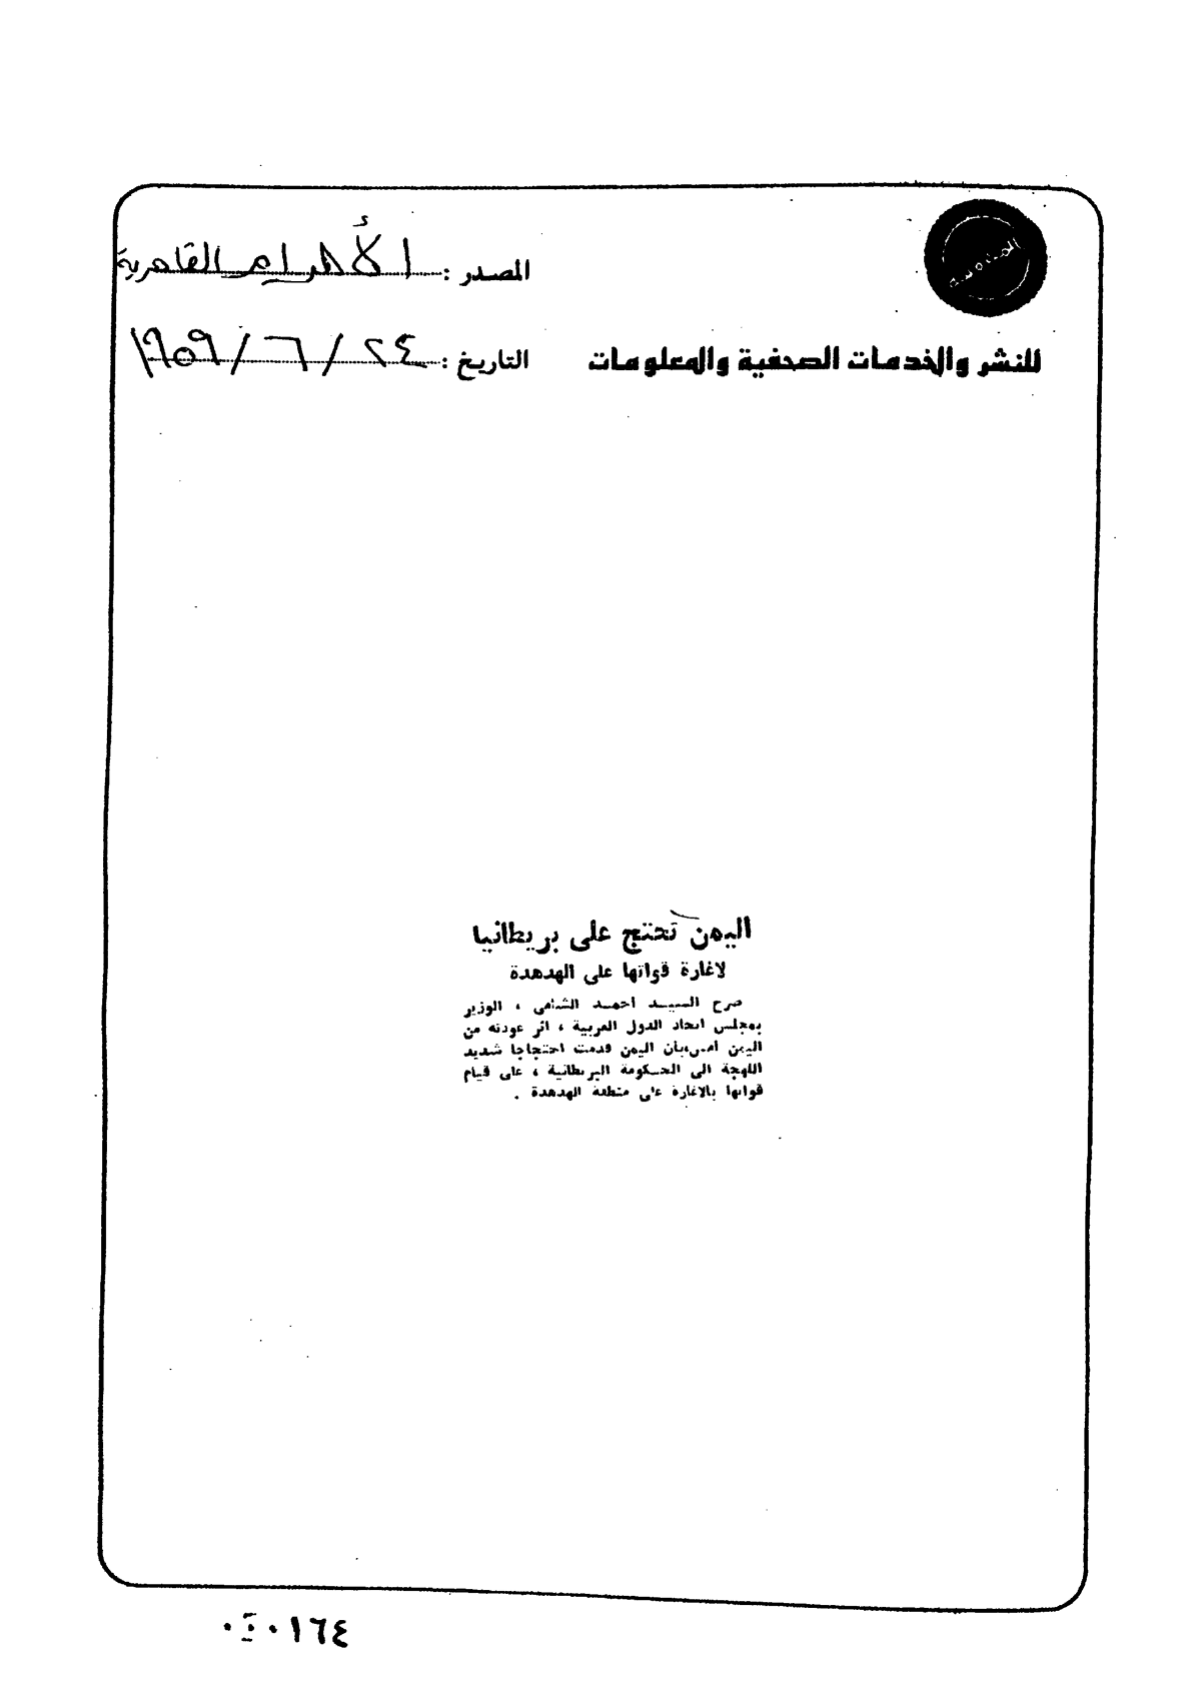 المصدر : الأهرام القاهرية
للنشر والخدمات الصحفية والمعلومات
التاريخ : ٢٤ / ٦ / ١٩٥٩
اليمن تحتج على بريطانيا
لاغارة قواتها على الهدهدة
صرح السيد احمد الشامى ، الوزير
بمجلس اتحاد الدول العربية ، اثر عودته من
اليمن امس بأن اليمن قدمت احتجاجا شديد
اللهجة الى الحكومة البريطانية ، على قيام
قواتها بالاغارة على منطقة الهدهدة .